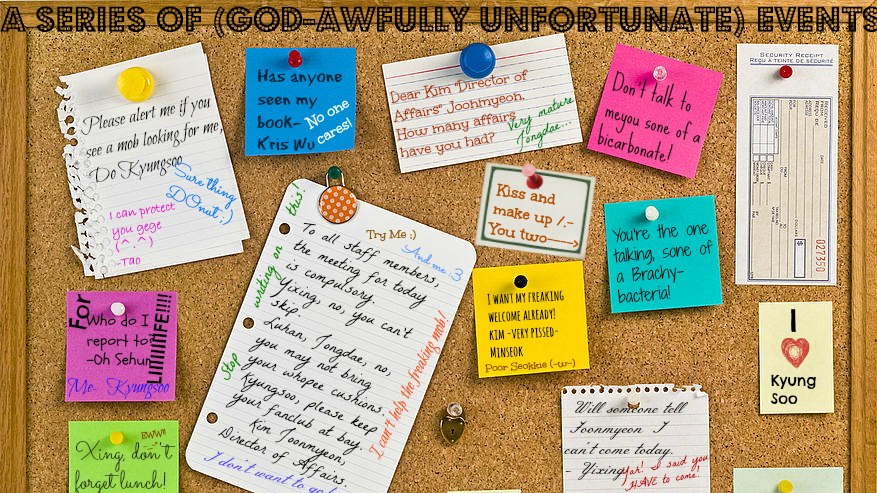 A SERIES OF (GOD-AWFULLY UNFORTUNATE) EVENTS
Please alert me if you
see a mob looking for me,
Do Kyungsoo
Sure thing
DOnut ;)
I can protect
you gege
(^.^)
-Tao
Has anyone
seen my
book-
Kris Wu
No one
cares!
Dear Kim "Director of
Affairs" Joohmyeon.
How many affairs
have you had?
Very mature
Jongdae...
Don't talk to
meyou sone of a
bicarbonate!
SECURITY RECEIPT
REÇU À TEINTE DE SÉCURITÉ
RECEIVED
FROM
REÇU DE
DATE
FOR
DOLLARS $
027350
Kiss and
make up !.-
You two
You're the one
talking, sone of
a Brachy-
bacteria!
this!
writing on
Stop
Try Me :)
And me :3
To all staff members,
the meeting for today
is compulsory.
Yixing, no, you can't
skip.
Luhan, Jongdae, no,
you may not bring
your whopee cushions.
Kyungsoo, please keep
your fanclub at bay.
Kim Joonmyeon,
Director of Affairs.
I can't help the freaking mob!
I don't want to go!
I WANT MY FREAKING
WELCOME ALREADY!
KIM -VERY PISSED-
MINSEOK
Poor Seokkie (-w-)
For
Who do I
report to?
-Oh Sehun
LIIIIIIIFE!!!!
Me- Kyungsoo
I
Kyung
Soo
EWW!!
Xing, don't
forget lunch!
Will someone tell
Joonmyeon I
can't come today.
- Yixing
Yah! I said you
HAVE to come!